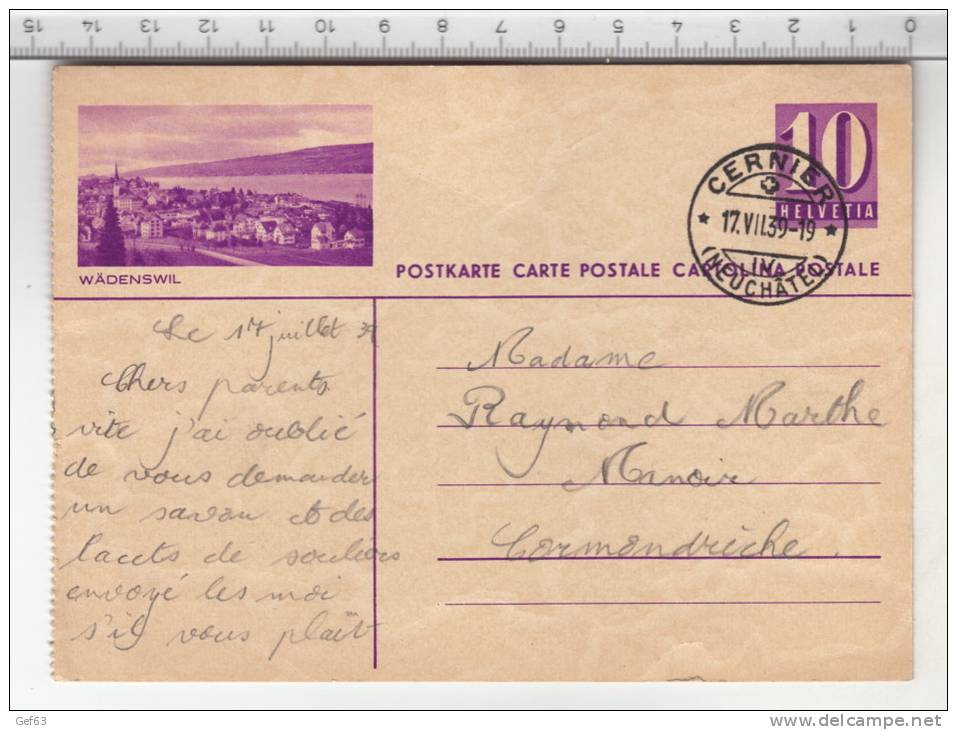 15 14 13 12 11 10 9 8 7 6 5 4 3 2 1 0
10
HELVETIA
CERNIER
17.VII.39-19
IV
(NEUCHÂTEL)
WÄDENSWIL
POSTKARTE CARTE POSTALE CARTOLINA POSTALE
Le 17 juillet 39
Chers parents
vite j'ai oublié
de vous demander
un savon et des
lacets de souliers
envoyé les moi
s'il vous plaît
Madame
Raymond Marthe
Manoir
Cormondrèche.
Gef63
delcampe.net